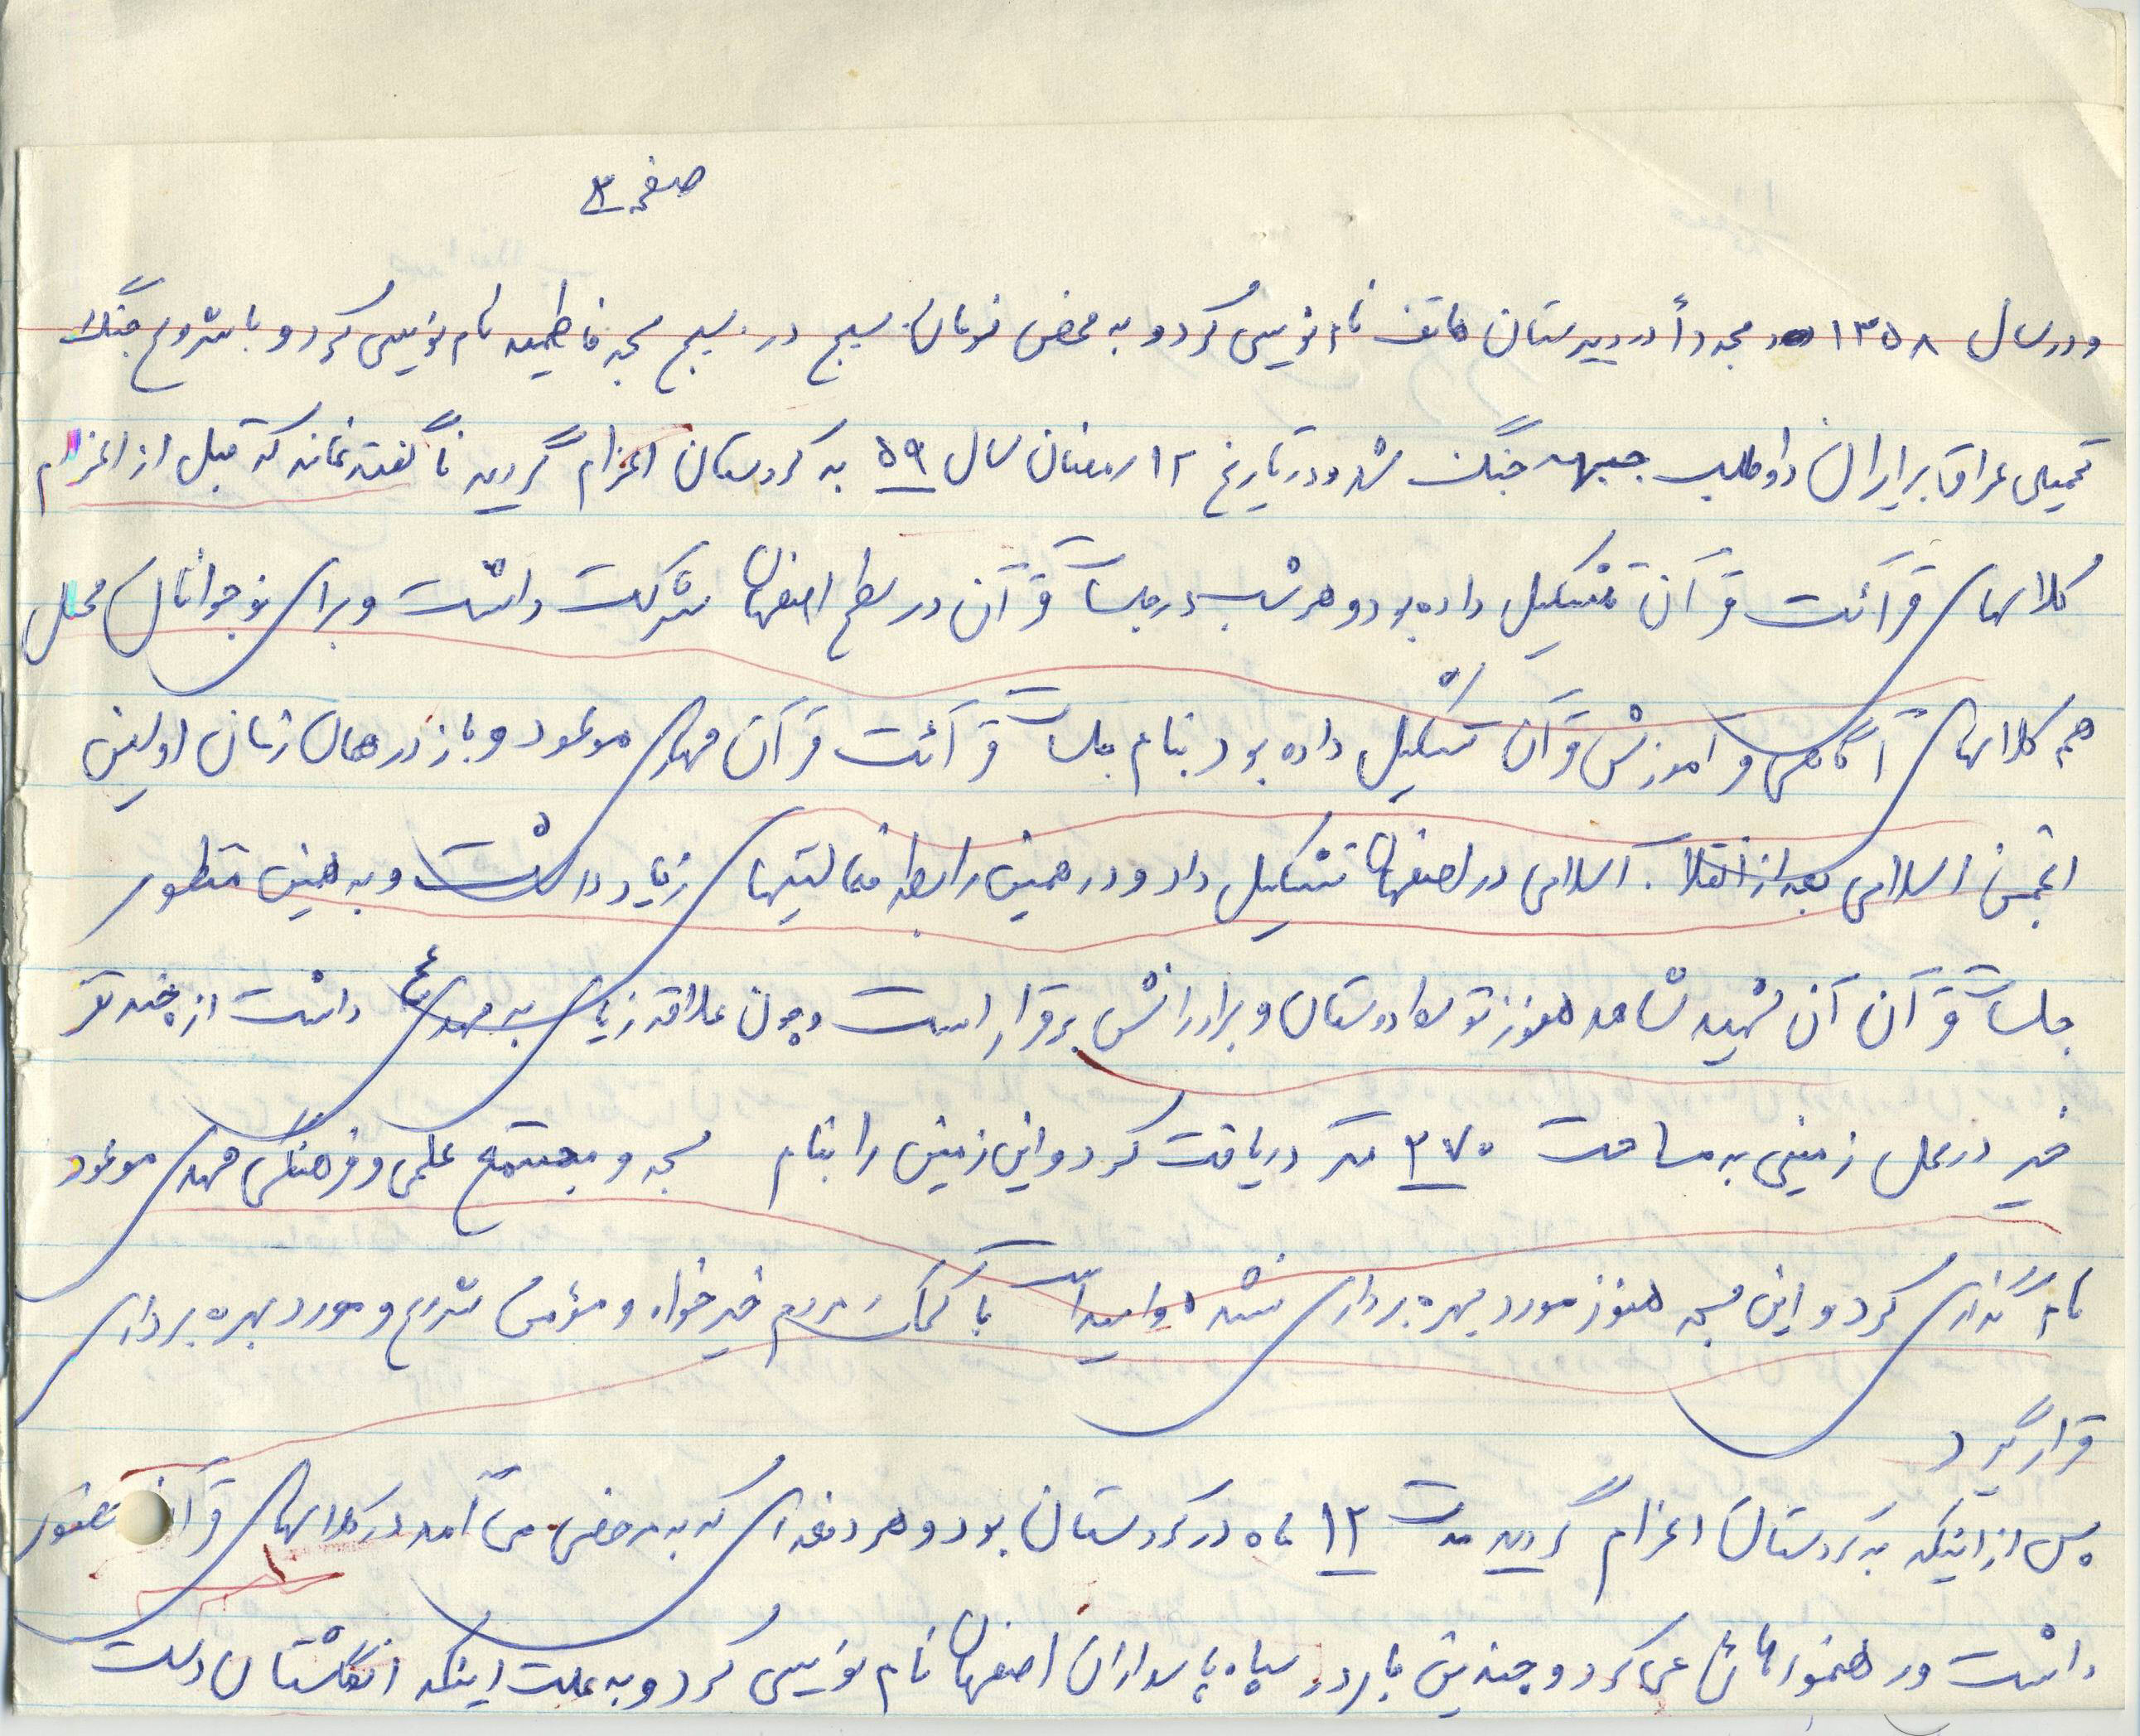 صفحه ۳
و در سال ۱۳۵۸ مجدداً در دبیرستان هاتف نام نویسی کرد و به محض فرمان بسیج در بسیج مسجد فاطمیه نام نویسی کرد و با شروع جنگ
تحمیلی عراق بر ایران داوطلب جبهه جنگ شد و در تاریخ ۱۲ رمضان سال ۵۹ به کردستان اعزام گردید ناگفته نماند که قبل از اعزام
کلاسهای قرآئت قرآن تشکیل داده بود و هر شب در جلسات قرآن در سطح اصفهان شرکت داشت و برای نوجوانان محل
هم کلاسهای آگاهی و آموزش قرآن تشکیل داده بود بنام جلسات قرآئت قرآن مهدی موعود و باز در همان زمان اولین
انجمن اسلامی بعد از انقلاب اسلامی در اصفهان تشکیل داد و در همین رابطه فعالیتهای زیاد داشت و به همین منظور
جلسات قرآن آن شهید شاهد هنوز توسط دوستان و برادرانش برقرار است و چون علاقه زیادی به مهدی (عج) داشت از چند نفر
خیر در محل زمینی به مساحت ۳۷۰ متر دریافت کرد و این زمین را بنام مسجد و مجتمع علمی و فرهنگی مهدی موعود
نام گذاری کرد و این مسجد هنوز مورد بهره برداری نشده و امید است با کمک مردم خیرخواه و مؤمن شروع و مورد بهره برداری
قرار گیرد
پس از اینکه به کردستان اعزام گردید مدت ۱۲ ماه در کردستان بود و هر دفعه ای که به مرخصی می آمد در کلاسهای قرآن حضور
داشت و رهنمودهائی می کرد و چندین بار در سپاه پاسداران اصفهان نام نویسی کرد و به علت اینکه انگشتان دست